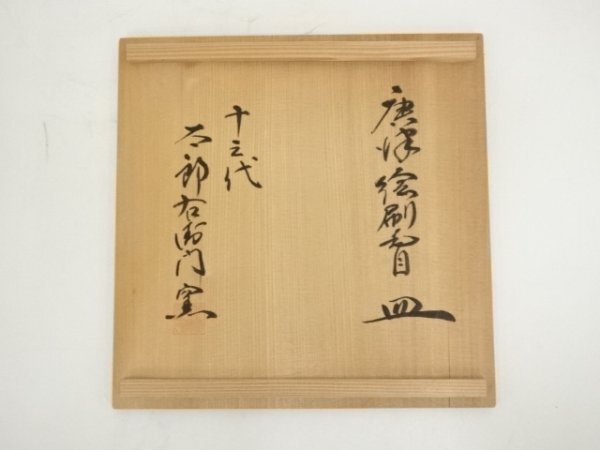 唐津絵刷毛目皿
十三代
太郎右衛門窯